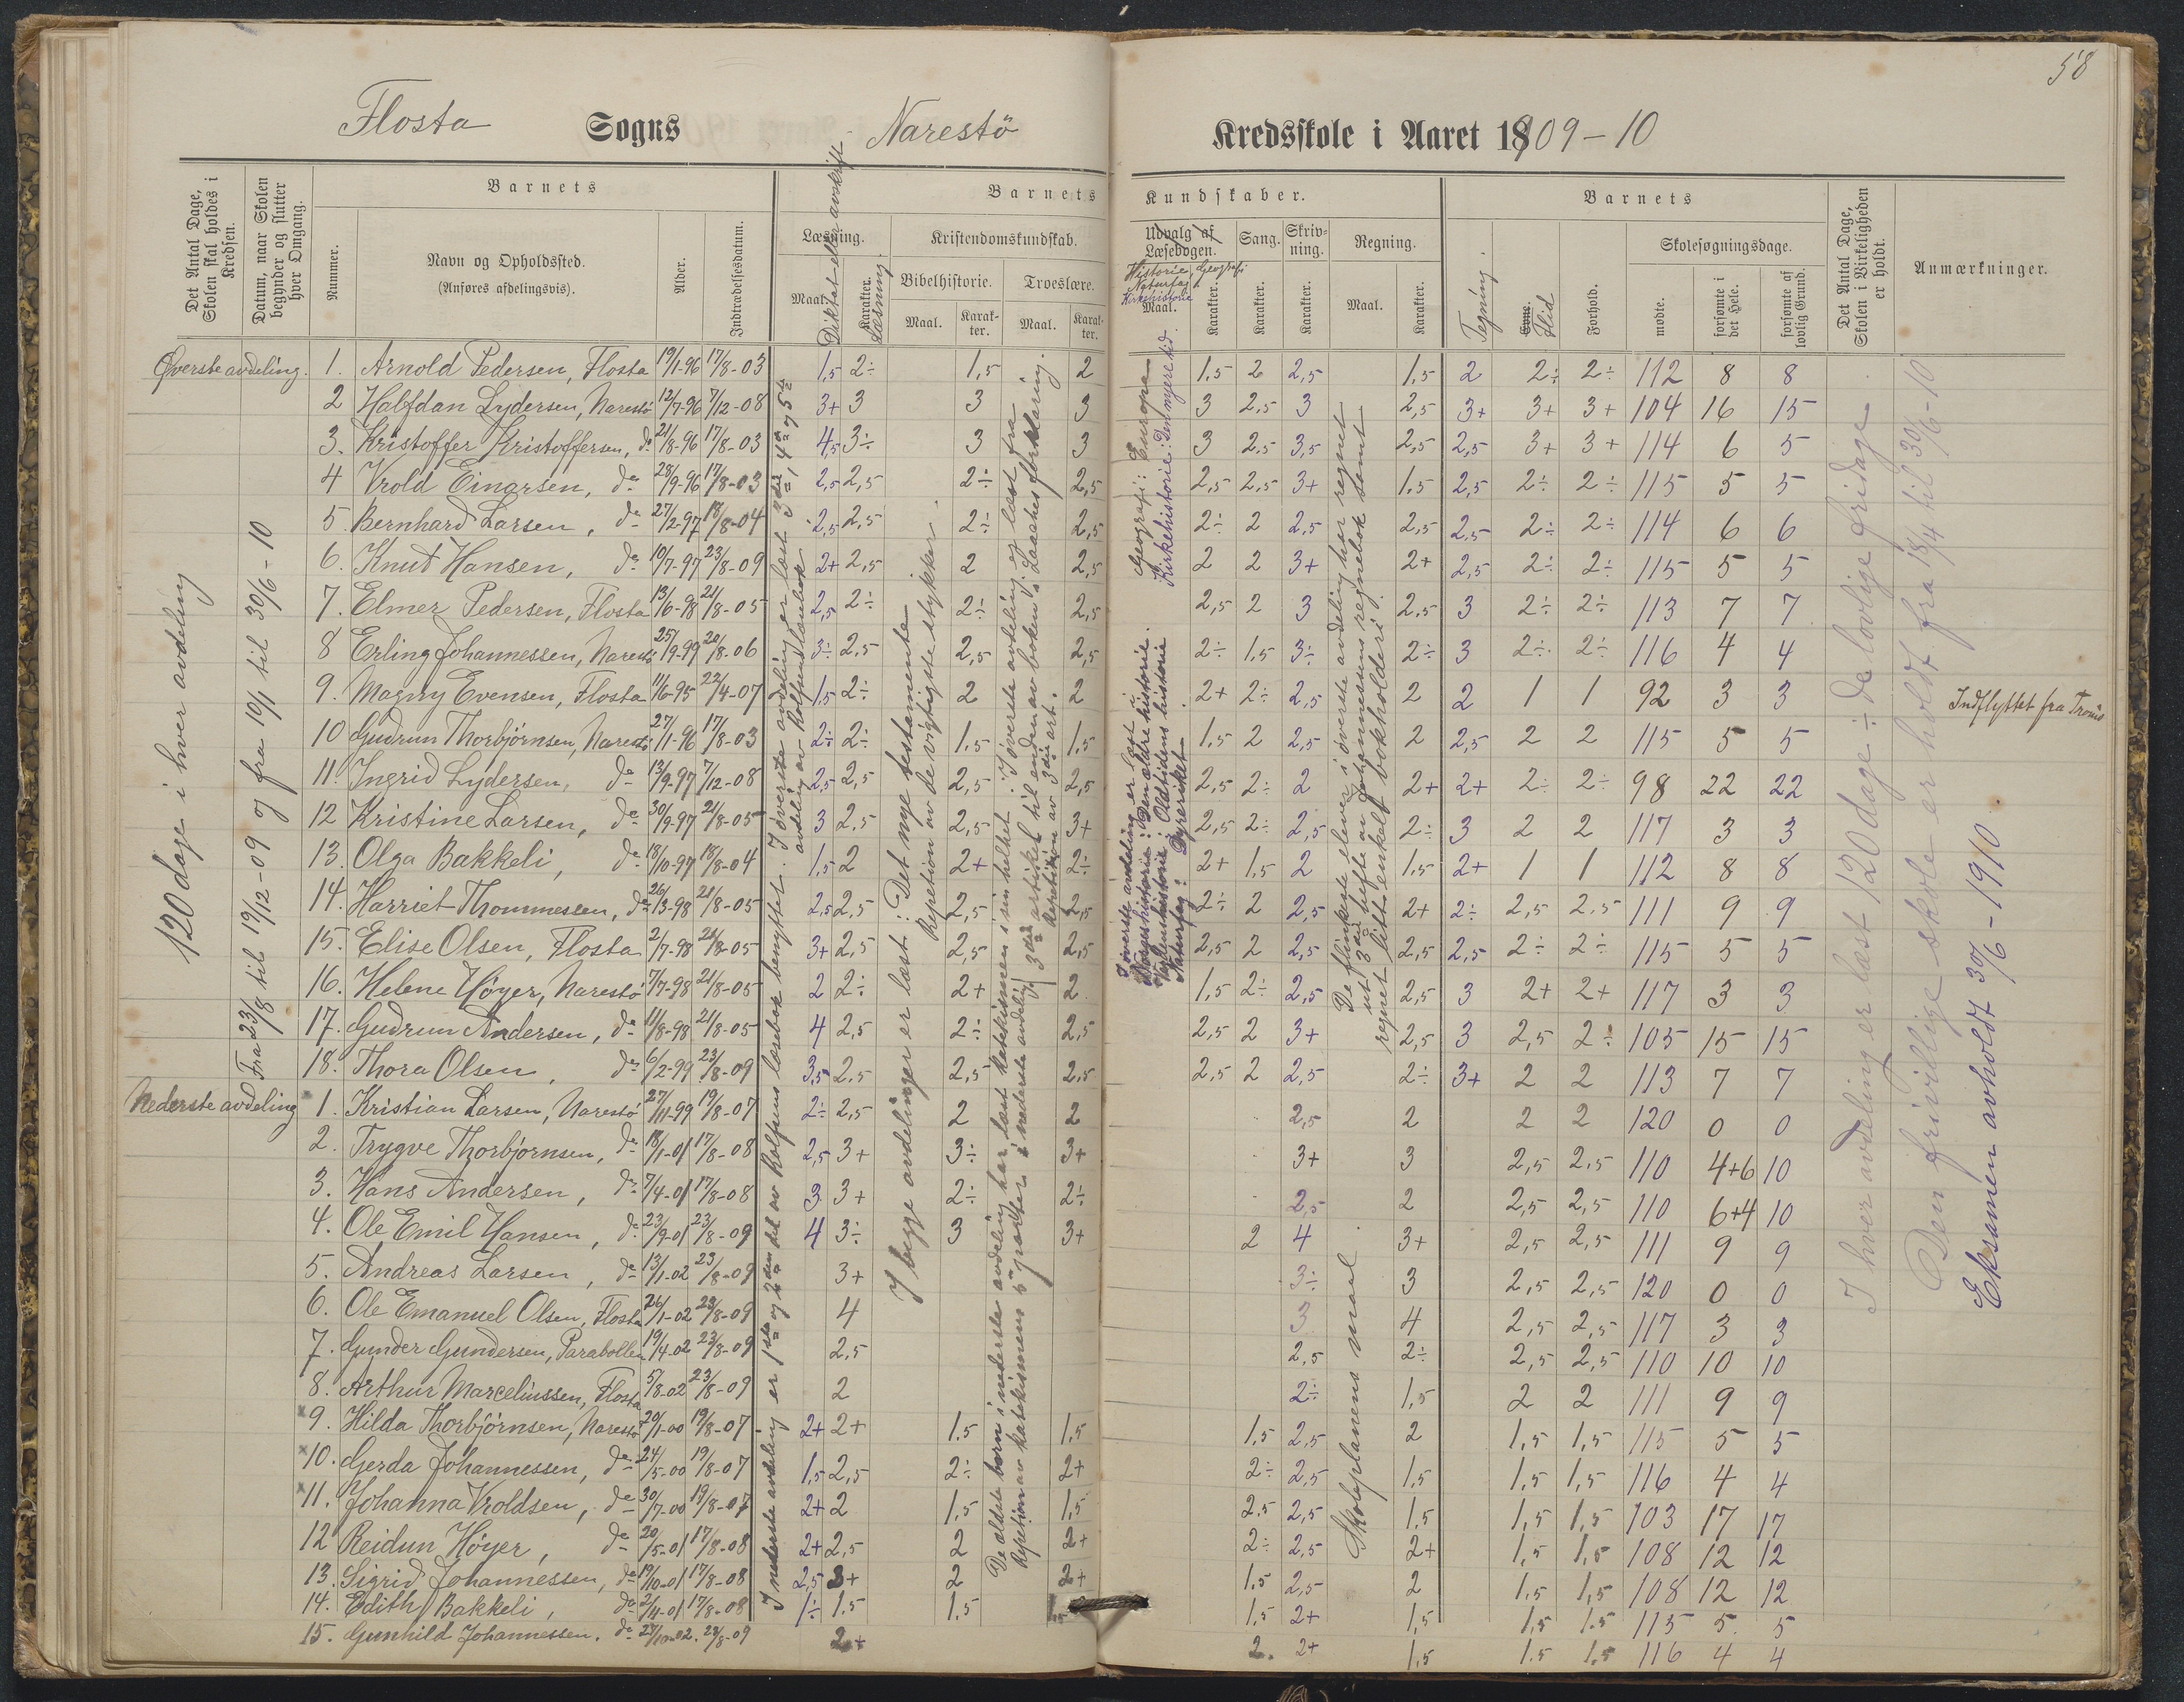 58
Flosta Sogns Narestö Kredsskole i Aaret 1909-10
Det Antal Dage, Skolen skal holdes i Kredsen.
Datum, naar Skolen begynder og slutter hver Omgang.
Barnets
Nummer.
Navn og Opholdssted.
(Anføres afdelingsvis).
Alder.
Indtrædelsesdatum.
Barnets Kundskaber.
Læsning.
Maal.
Diktat eller avskrift
Karakter.
Læsning.
Kristendomskundskab.
Bibelhistorie.
Maal.
Karakter.
Troeslære.
Maal.
Karakter.
Udvalg af Læsebogen.
Historie, Geografi
Naturfag
Kirkehistorie
Maal.
Karakter.
Sang.
Karakter.
Skrivning.
Karakter.
Regning.
Maal.
Karakter.
Barnets
Tegning.
Evne.
Flid
Forhold.
Skolesøgningsdage.
mødte.
forsømte i det Hele.
forsømte af lovlig Grund.
Det Antal Dage, Skolen i Virkeligheden er holdt.
Anmærkninger.
Øverste avdeling. 1. Arnold Pedersen, Flosta 19/1-96 17/8-03 1,5 2÷ 1,5 2 1,5 2 2,5 1,5 2 2÷ 2÷ 112 8 8
2 Halfdan Lydersen, Narestö 12/7-96 7/12-08 3+ 3 3 3 3 2,5 3 2,5 3+ 3+ 3+ 104 16 15
3. Kristoffer Kristoffersen, do 21/8-96 17/8-03 4,5 3÷ 3 3 3 2,5 3,5 2,5 2,5 3+ 3+ 114 6 5
4 Vrold Einarsen, do 28/9-96 17/8-03 2,5 2,5 2÷ 2,5 2,5 2,5 3+ 1,5 2,5 2÷ 2÷ 115 5 5
5. Bernhard Larsen, do 27/2-97 18/8-04 2,5 2,5 2÷ 2,5 2÷ 2 2,5 2,5 2,5 2÷ 2÷ 114 6 6
6. Knut Hansen, do 10/7-97 23/8-09 2+ 2,5 2 2,5 2 2 3+ 2+ 2,5 2÷ 2÷ 115 5 5
7. Elmer Pedersen, Flosta 13/6-98 21/8-05 2,5 2÷ 2÷ 2,5 2,5 2 3 2,5 3 2÷ 2÷ 113 7 7
8 Erling Johannessen, Narestö 25/9-99 20/8-06 3÷ 2,5 2,5 2,5 2÷ 1,5 3÷ 2÷ 3 2÷ 2÷ 116 4 4
9. Magny Evensen, Flosta 11/6-95 22/4-07 1,5 2÷ 2 2 2+ 2÷ 2,5 2 2 1 1 92 3 3 Indflyttet fra Tromö
10 Gudrun Thorbjörnsen, Narestö 27/11-96 17/8-03 2÷ 2÷ 1,5 1,5 1,5 2 2,5 2 2,5 2 2 115 5 5
11. Ingrid Lydersen, do 13/9-97 7/12-08 2,5 2,5 2,5 2,5 2,5 2÷ 2 2+ 2+ 2÷ 2÷ 98 22 22
12 Kristine Larsen, do 30/9-97 21/8-05 3 2,5 2,5 3+ 2,5 2÷ 2,5 2÷ 3 2 2 117 3 3
13. Olga Bakkeli, do 18/10-97 18/8-04 1,5 2 2+ 2÷ 2+ 1,5 2 1,5 2+ 1 1 112 8 8
14. Harriet Thommesen, do 26/3-98 21/8-05 2,5 2,5 2,5 2,5 2÷ 2 2,5 2+ 2÷ 2,5 2,5 111 9 9
15. Elise Olsen, Flosta 2/7-98 21/8-05 3+ 2,5 2,5 2,5 2,5 2 2,5 2,5 2,5 2÷ 2÷ 115 5 5
16. Helene Höyer, Narestö 7/7-98 21/8-05 2 2÷ 2+ 2 1,5 2÷ 2,5 2,5 3 2+ 2+ 117 3 3
17. Gudrun Andersen, do 11/8-98 21/8-05 4 2,5 2÷ 2,5 2,5 2 3+ 2,5 3 2,5 2÷ 105 15 15
18. Thora Olsen, do 6/2-99 23/8-09 3,5 2,5 2,5 2,5 2,5 2 2,5 2÷ 3+ 2 2 113 7 7
Nederste avdeling 1. Kristian Larsen, Narestö 27/11-99 19/8-07 2÷ 2,5 2 2 2,5 2 2 2 120 0 0
2. Trygve Thorbjörnsen, do 18/1-01 17/8-08 2,5 3+ 3÷ 3+ 3+ 3 2,5 2,5 110 4+6 10
3. Hans Andersen, do 7/4-01 17/8-08 3 3+ 2÷ 2÷ 2,5 2 2,5 2,5 110 6+4 10
4. Ole Emil Hansen, do 23/9-01 23/8-09 4 3÷ 3 3+ 2 4 3+ 2,5 2,5 111 9 9
5. Andreas Larsen, do 13/1-02 23/8-09 3+ 3÷ 3 2,5 2,5 120 0 0
6. Ole Emanuel Olsen, Flosta 26/1-02 23/8-09 4 3 4 2,5 2,5 117 3 3
7. Gunder Gundersen, Parabollen 19/4-02 23/8-09 2,5 2,5 2÷ 2,5 2,5 110 10 10
8. Arthur Marceliussen, Flosta 5/8-02 23/8-09 2 2÷ 1,5 2 2 111 9 9
×9. Hilda Thorbjörnsen, Narestö 20/1-00 19/8-07 2+ 2+ 1,5 1,5 1,5 2,5 2 1,5 1,5 115 5 5
×10. Gerda Johannessen, do 24/5-00 19/8-07 1,5 2,5 2÷ 2+ 2÷ 2,5 1,5 1,5 1,5 116 4 4
×11. Johanna Vroldsen, do 30/7-00 19/8-07 2+ 2 1,5 1,5 2,5 2,5 1,5 1,5 1,5 103 17 17
12 Reidun Höyer, do 20/5-01 17/8-08 2+ 2,5 2 2+ 2÷ 2,5 2+ 1,5 1,5 108 12 12
13. Sigrid Johannessen, do 19/10-01 17/8-08 2,5 3+ 2 2+ 1,5 2,5 2 1,5 1,5 108 12 12
14. Edith Bakkeli, do 2/11-01 17/8-08 1÷ 1,5 1,5 1,5 1,5 2+ 1,5 1,5 1.5 115 5 5
15. Gunhild Johannessen. do 27/10-02. 23/8-09 2+ 2. 2+ 1,5 1.5 1,5 116 4 4
120 dage i hver avdeling
Fra 23/8 til 19/12-09 og fra 10/1 til 30/6-10
I nederste avdeling er 1ste og 2den del av Rolfsens læsebok benyttet. I överste avdeling er læst 3die, 4de og 5te
avdeling av Rolfsens læsebok
I begge avdelinger er læst: Det nye testamente
Repetion av de vigtigste stykker.
De ældste börn i nederste avdeling har læst katekismen i sin helhet. I överste avdeling er læst fra
3die artikel til enden av boken i Laaches forklaring.
Repetion av katekismens 5 parter i nederste avdeling
Repetition av 3die art.
I överste avdeling er læst:
Norgeshistorie: Den ældre historie. Geografi: Europa
Verdenshistorie: Oldtidens historie Kirkehistorie: Den nyere tid.
Naturfag: Dyreriket
De flinkeste elever i överste avdeling har regnet
ut 3die hefte av Johannesens regnebok samt
regnet litt enkelt bokholderi.
Skoleplanens maal
I hver avdeling er læst 120 dage ÷ de lovlige fridage
Den frivillige skole er holdt fra 18/4 til 30/6-10
Eksamen avholdt 30/6-1910.